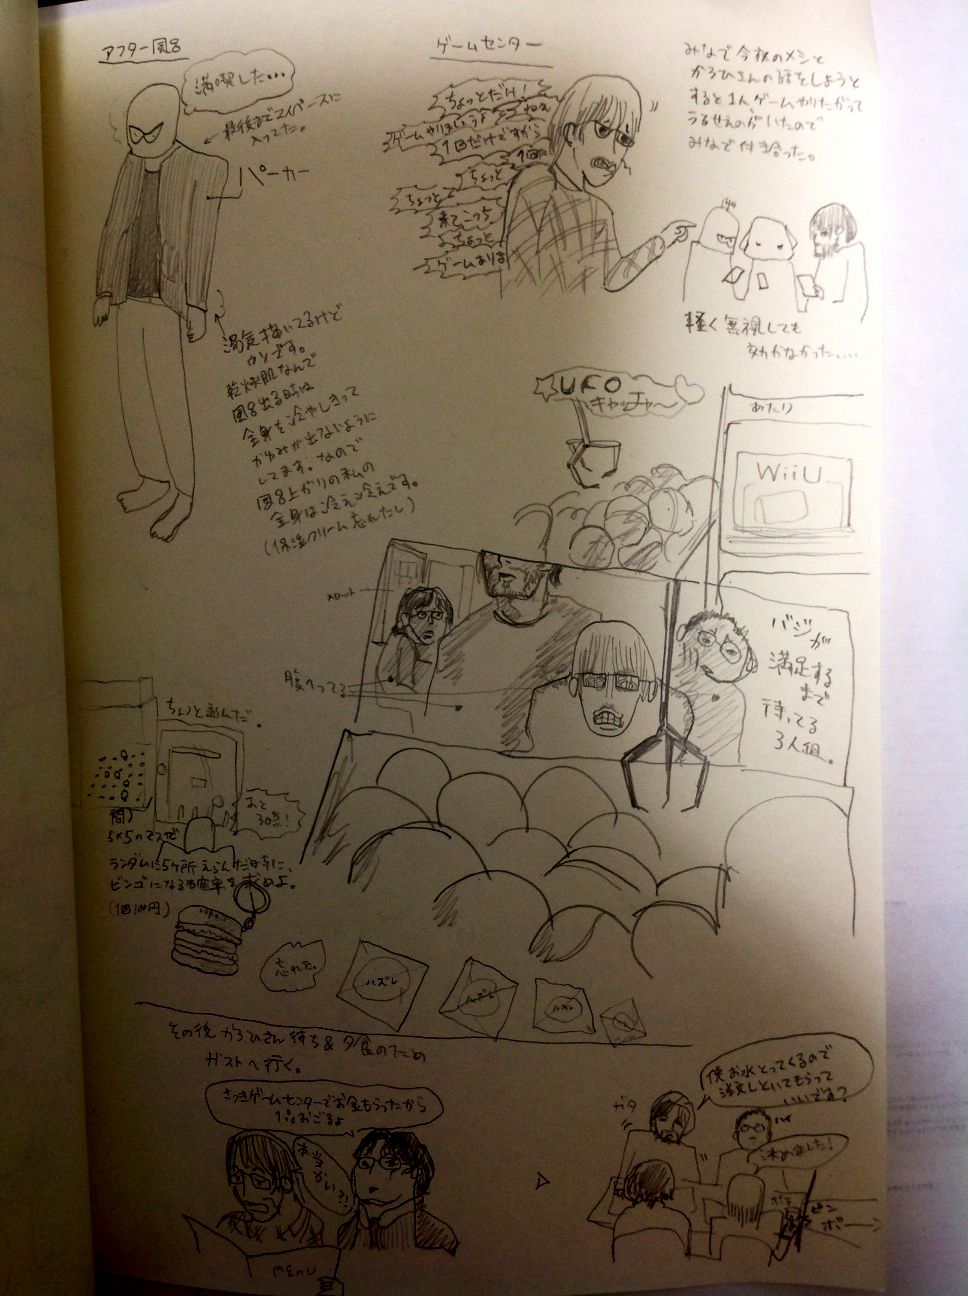 アフター風呂
満喫した…
最後までコイパースに
入ってた。
パーカー
湯気描いてるけど
ウソです。
乾燥肌なんで
風呂出る時は
全身を冷やしきって
かゆみが出ないように
してます。なので
風呂上がりの私の
全身は冷え冷えです。
(保湿クリーム忘れたし)
ゲームセンター
ちょっとだけ!
ゲームやりましょうよ
1回だけですから
1回
ちょっと
ちょっと
来てこっち
ちょっと
ゲームありま
みなで今夜のメシと
かろひさんの話をしようと
すると1人、ゲームやりたがって
うるせえのがいたので
みなで付き合った。
軽く無視しても
効かなかった….
UFO
キャッチャー
あたり
WiiU
スロット
腹へってる
バジが
満足する
まで
待ってる
3人組。
ちょっと遊んだ。
あと
30点!
問)
5×5のマスで
ランダムに5ケ所えらんだ時に、
ビンゴになる確率を求めよ。
(1回100円)
忘れた。
ハズレ
ハズレ
ハズレ
その後かろひさん待ち&夕食のため
ガストへ行く。
さっきゲームセンターでお金もらったから
おごるよ
本当かい?!
MENU
僕お水とってくるので
注文しといてもらって
いいですか?
ガタ
ハイ
決めました!
ピン
ポーン